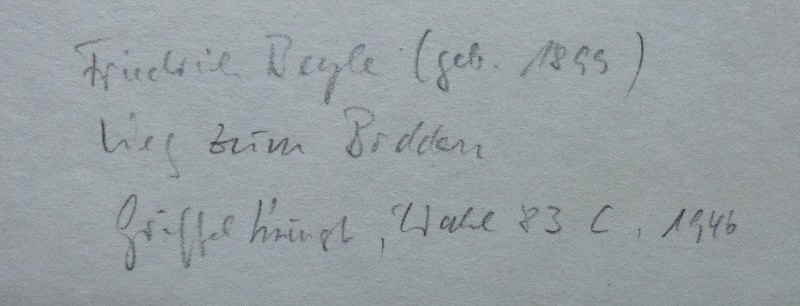 Friedrich Beyle (geb. 1899)
Weg zum Bodden
Griffelkunst, Wahl 83 C, 1946